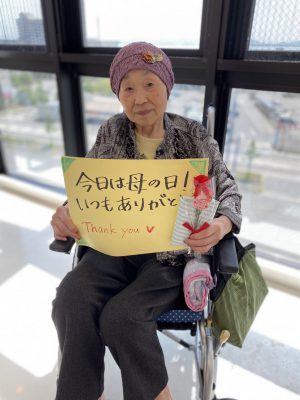 今日は母の日！
いつもありがと
Thank you ♥